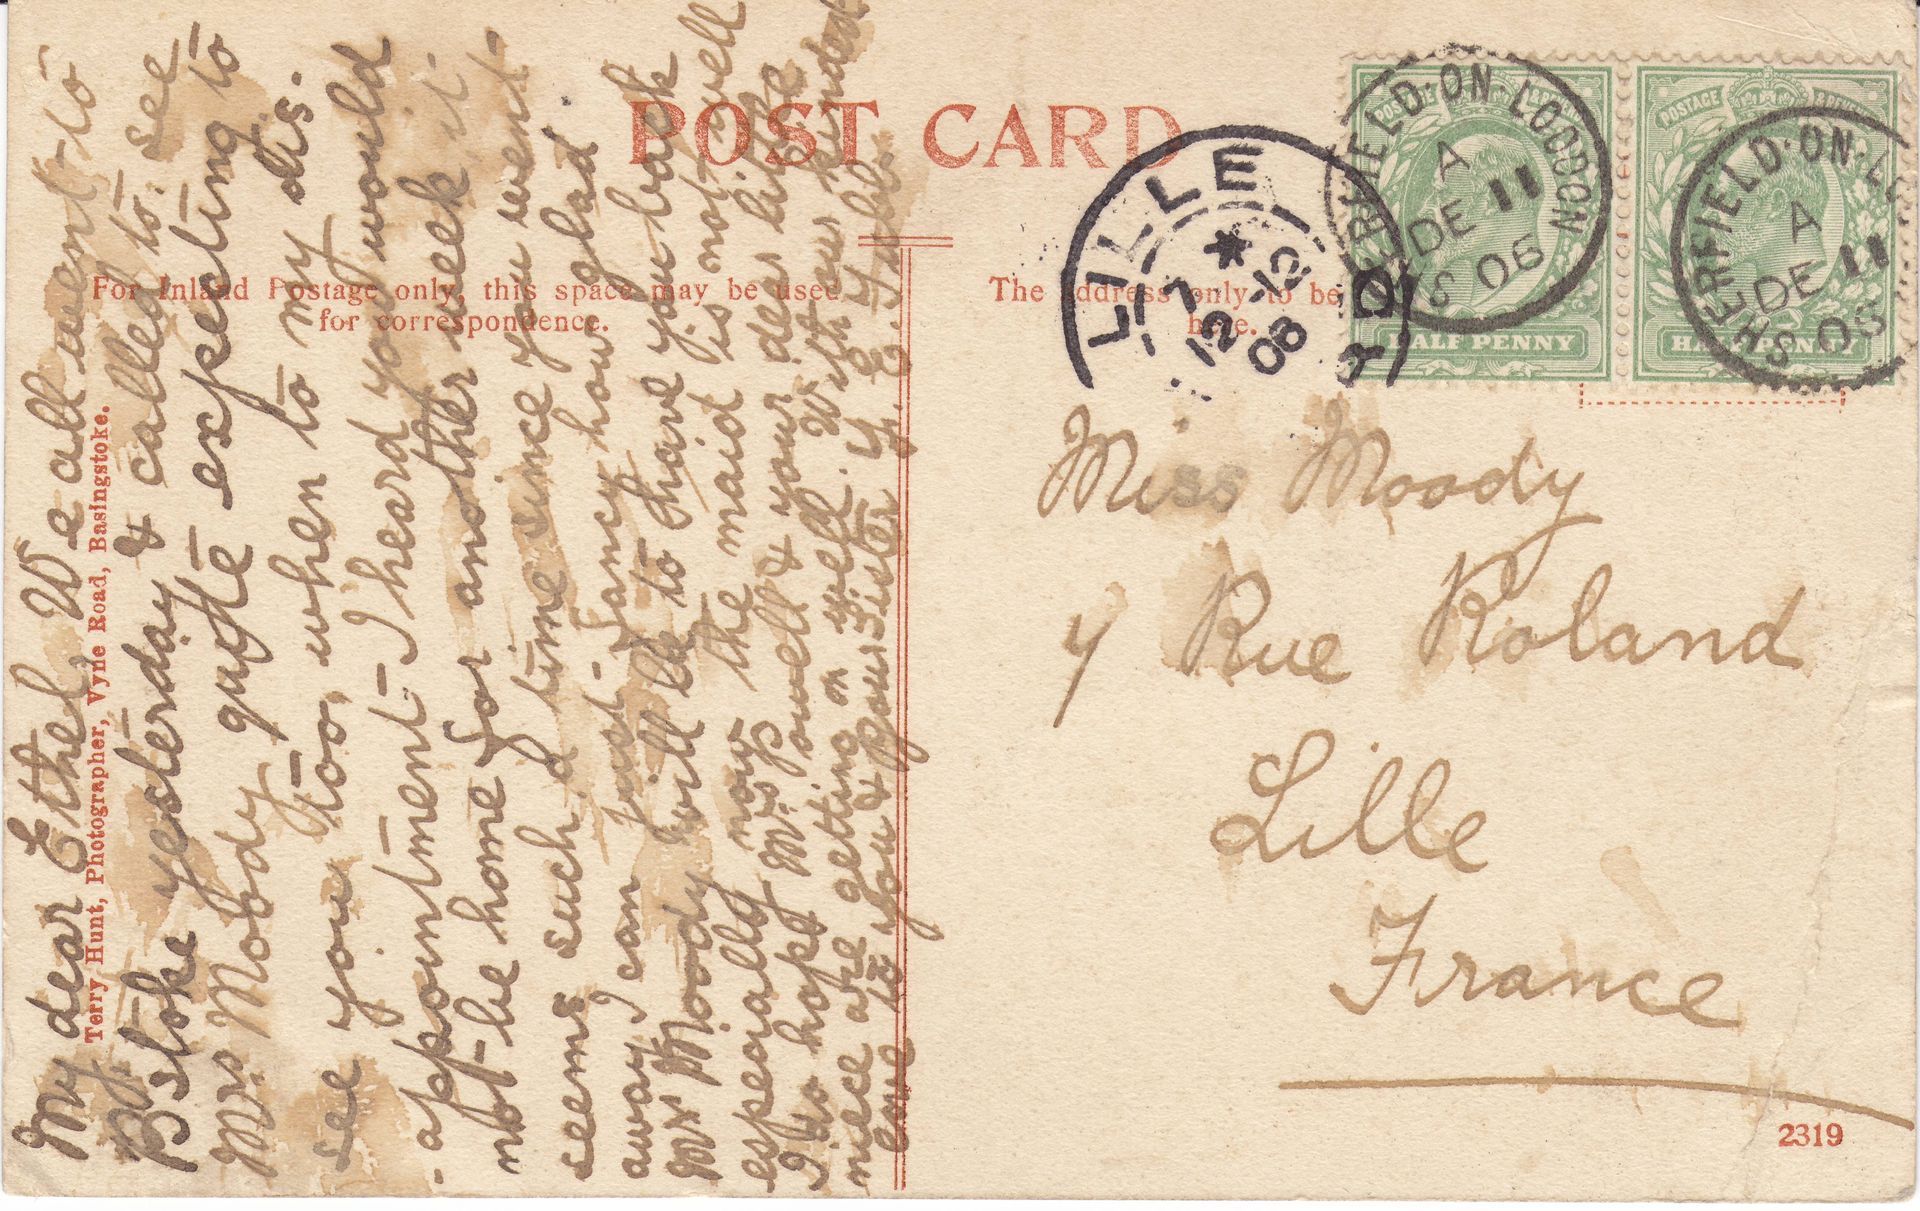 POST CARD
For Inland Postage only, this space may be used
for correspondence.
The address only to be
here.
Terry Hunt, Photographer, Vyne Road, Basingstoke.
My dear Ethel, We all went to
B'stoke yesterday & called to see
Mrs Moody quite expecting to
see you too, when to my dis-
-appointment I heard you would
not be home for another week it
seems such a time since you went
away, I can just fancy how glad
Mrs Moody will be to have you back
especially now the maid is not well
I do hope Mrs Powell & your dear little
niece are getting on well. With our kindest
love to you & your sister.
Miss Moody
7 Rue Roland
Lille
France
SHERFIELD·ON·LODDON
A
DE 11
06
SHERFIELD·ON·LO
A
DE 11
LILLE
NORD
POSTAGE
HALF PENNY
POSTAGE
HALF PENNY
2319